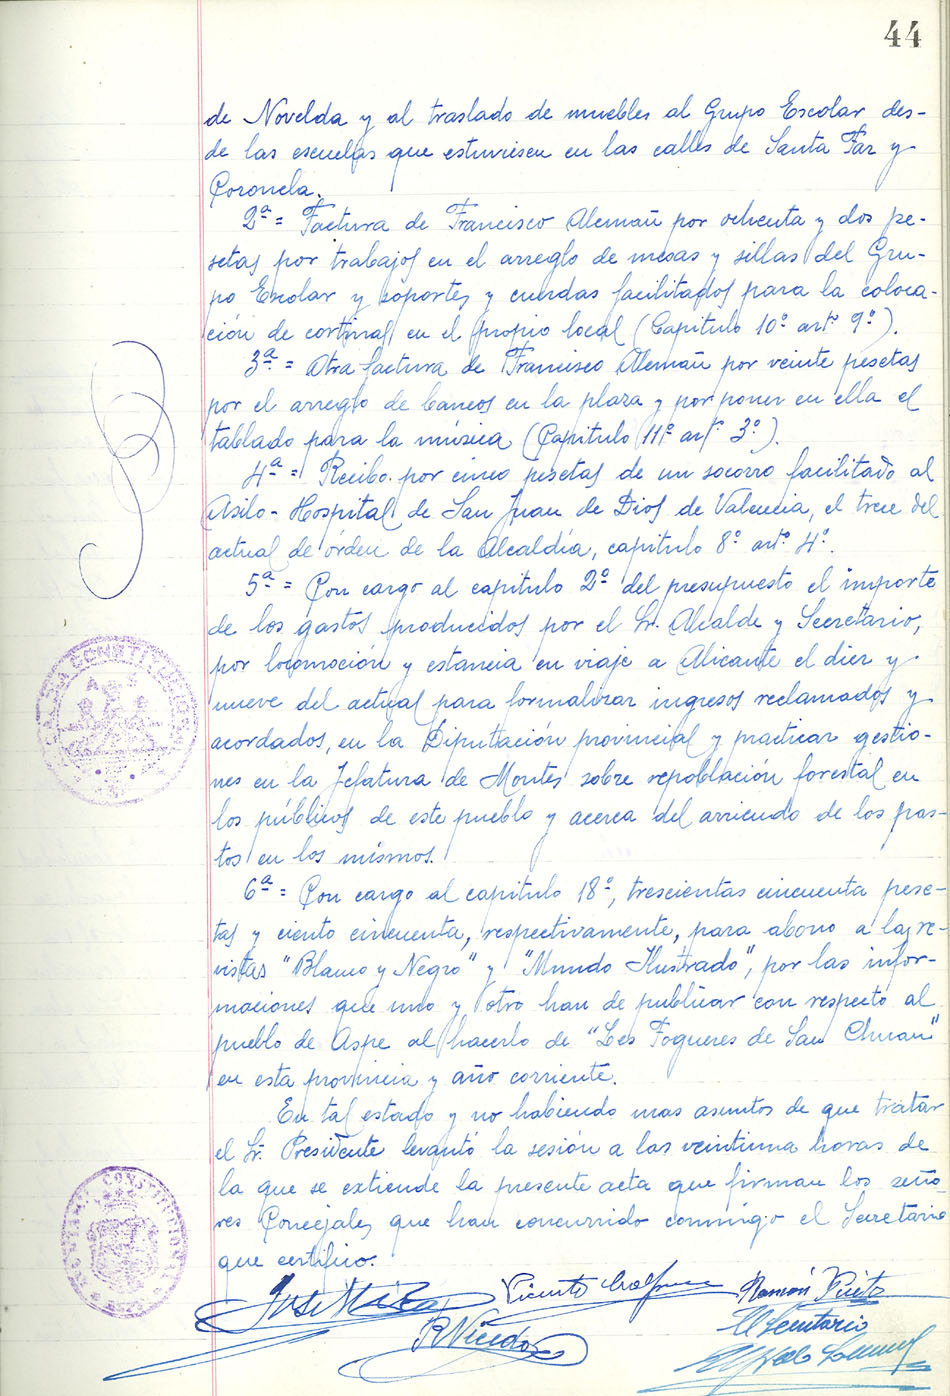 44
de Novelda y al traslado de muebles al Grupo Escolar des-
de las escuelas que estuviesen en las calles de Santa Faz y
Coronela.
2ª = Factura de Francisco Alemañ por ochenta y dos pe-
setas por trabajos en el arreglo de mesas y sillas del Gru-
po Escolar y soportes y cuerdas facilitados para la coloca-
ción de cortinas en el propio local (Capítulo 10º artº 9º).
3ª = Otra factura de Francisco Alemañ por veinte pesetas
por el arreglo de bancos en la plaza y por poner en ella el
tablado para la música (Capítulo 11º artº 3º).
4ª = Recibo por cinco pesetas de un socorro facilitado al
Asilo-Hospital de San Juan de Dios de Valencia, el trece del
actual de órden de la Alcaldía, capítulo 8º artº 4º.
5ª = Con cargo al capítulo 2º del presupuesto el importe
de los gastos producidos por el Sr. Alcalde y Secretario,
por locomoción y estancia en viaje a Alicante el diez y
nueve del actual para formalizar ingresos reclamados y
acordados, en la Diputación provincial y practicar gestio-
nes en la Jefatura de Montes sobre repoblación forestal en
los públicos de este pueblo y acerca del arriendo de los pas-
tos en los mismos.
6ª = Con cargo al capítulo 18º, trescientas cincuenta pese-
tas y ciento cincuenta, respectivamente, para abono a las re-
vistas "Blanco y Negro" y "Mundo Ilustrado", por las infor-
maciones que uno y otro han de publicar con respecto al
pueblo de Aspe al hacerlo de "Les Fogueres de San Chuan"
en esta provincia y año corriente.
En tal estado y no habiendo mas asuntos de que tratar
el Sr. Presidente levantó la sesión a las veintiuna horas de
la que se extiende la presente acta que firman los seño
res Concejales que han concurrido conmigo el Secretario
que certifico.
José Vicente Ramón Prieto
R Vicedo El Secretario
CONSTITUCIONAL
CONSTITUCIONAL